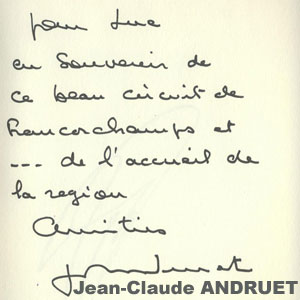 pour Luc
en souvenir de
ce beau circuit de
Francorchamps et
--- de l'accueil de
la region
Amitiés
Jean-Claude ANDRUET